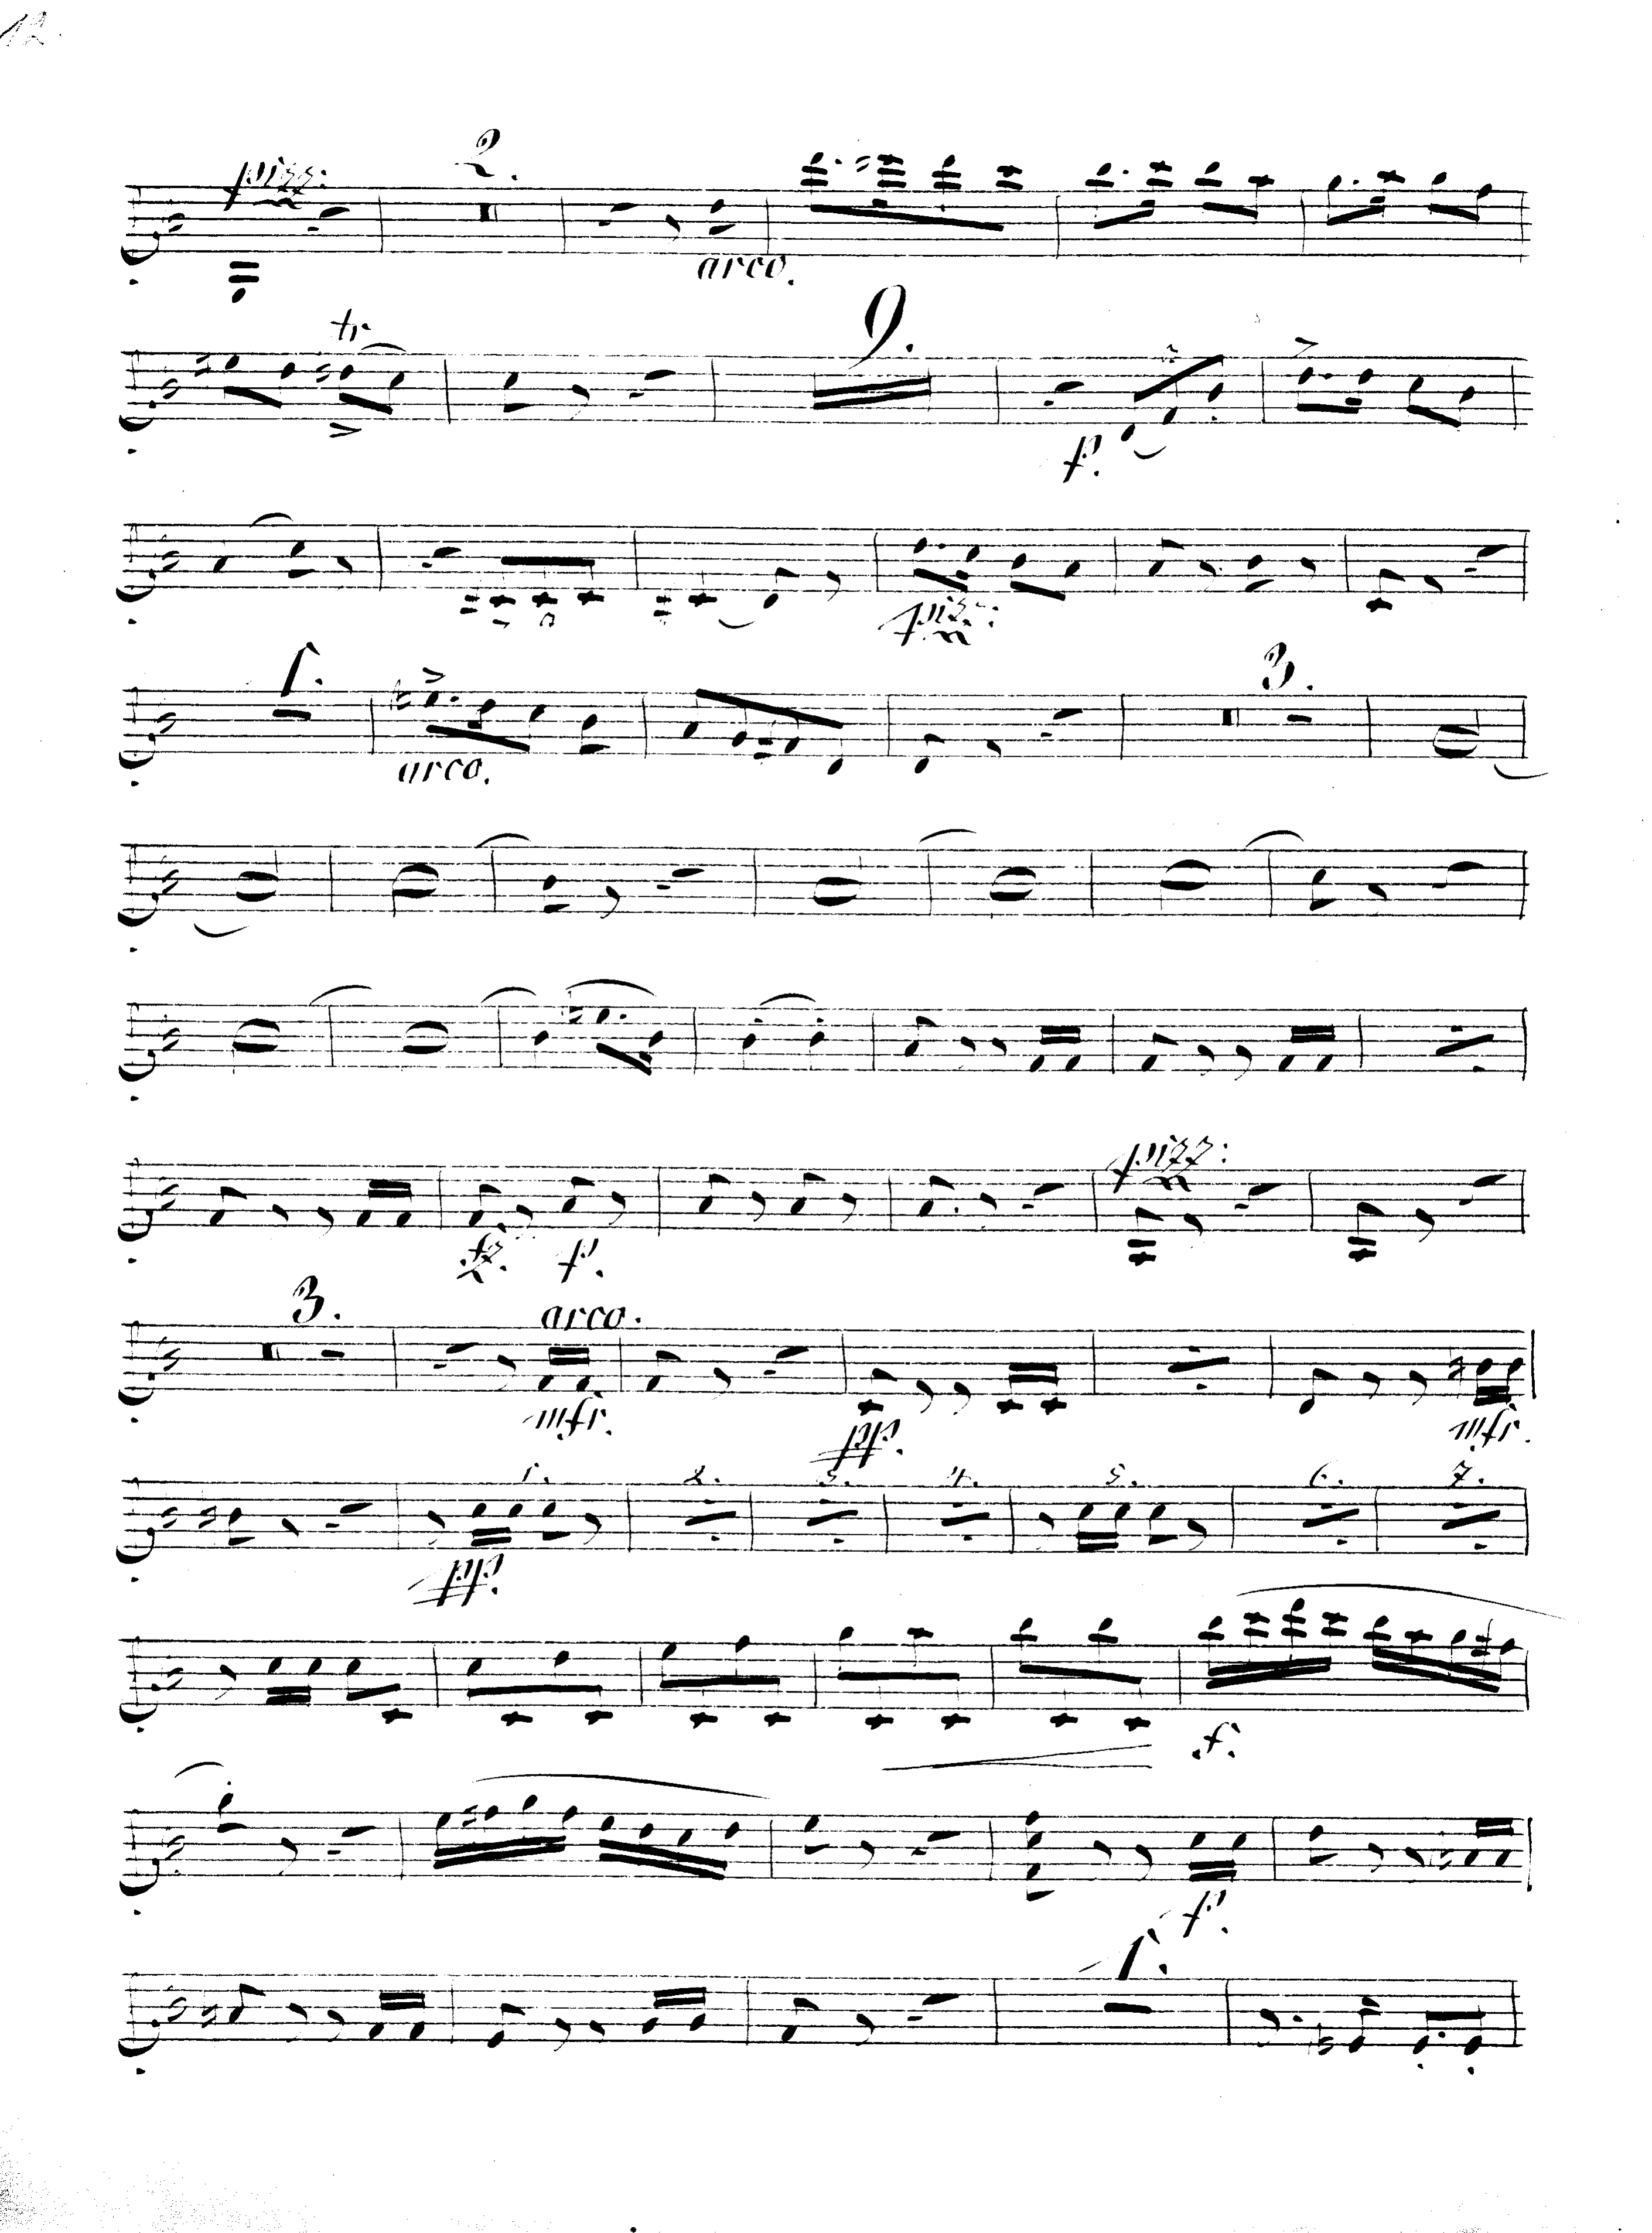 12.
pizz: 2. arco.
tr 9. f.
pizz:
1. arco. 3.
pizz:
fz. f.
3. arco. mfr. pp. mfr.
1. 2. 3. 4. 5. 6. 7. pp.
f.
f.
1.